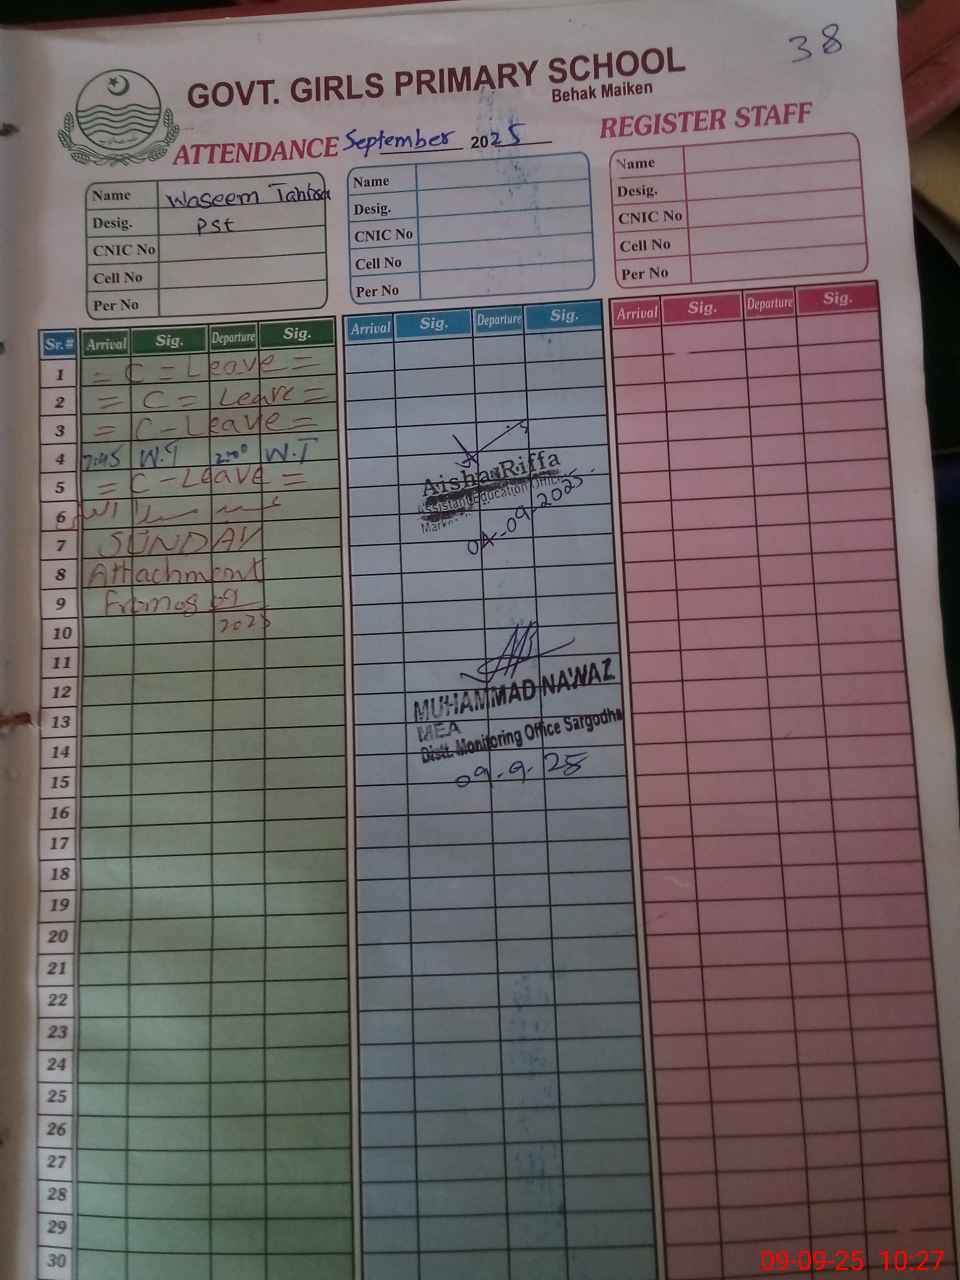 38
GOVT. GIRLS PRIMARY SCHOOL
Behak Maiken
ATTENDANCE September 2025 REGISTER STAFF
Name Waseem
Desig. PST
CNIC No
Cell No
Per No
Name
Desig.
CNIC No
Cell No
Per No
Name
Desig.
CNIC No
Cell No
Per No
Sr.# Arrival Sig. Departure Sig. Arrival Sig. Departure Sig. Arrival Sig. Departure Sig.
1 = C = Leave =
2 = C = Leave =
3 = C - Leave =
4 7:45 W.T W.T
5 = C - Leave =
6
7 SUNDAY
8 Attachment
9 From 08 09
10 2025
11
12
13
14
15
16
17
18
19
20
21
22
23
24
25
26
27
28
29
30
Aisha Riffa
Assistant Education Officer
04-09-2025
MUHAMMAD NAWAZ
MEA
Distt. Monitoring Office Sargodha
09-9-25
09-09-25 10:27